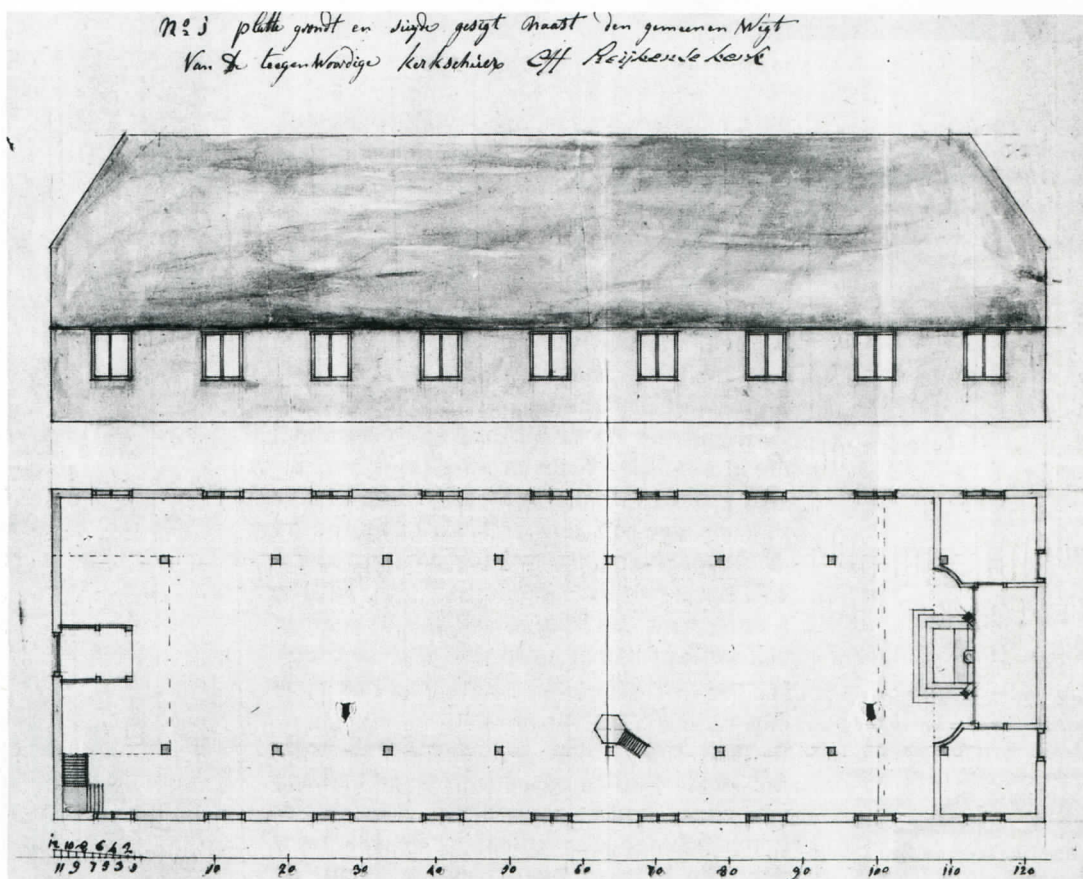 No 1 platte grondt en sijde gesigt naast den gemeenen Wigt
Van De teegenWoordige kerkschiere Off
12 10 8 6 4 2
11 9 7 5 3 1 10 20 30 40 50 60 70 80 90 100 110 120